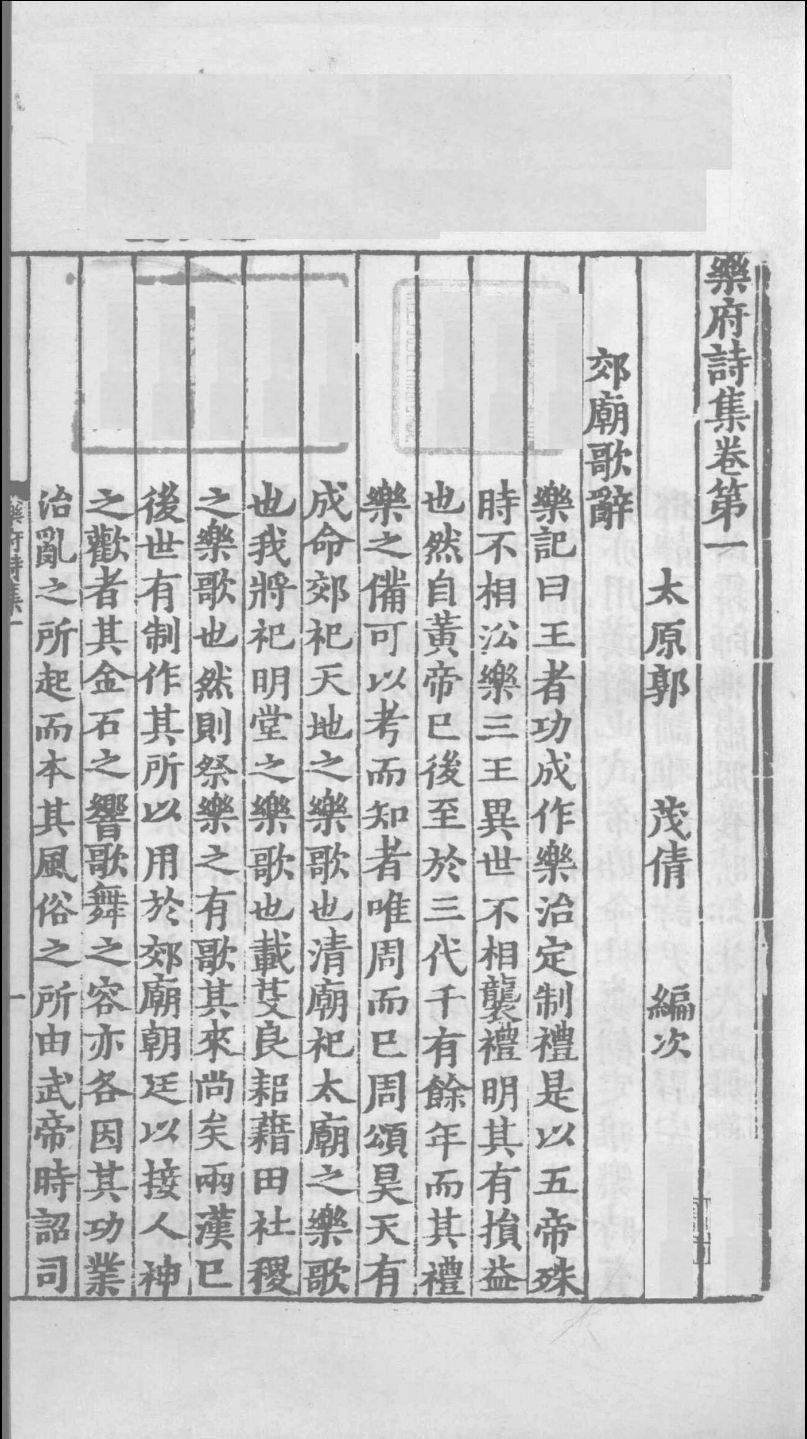 樂府詩集卷第一
太原郭 茂倩 編次
郊廟歌辭
樂記曰王者功成作樂治定制禮是以五帝殊
時不相㳂樂三王異世不相襲禮明其有損益
也然自黃帝已後至於三代千有餘年而其禮
樂之備可以考而知者唯周而已周頌昊天有
成命郊祀天地之樂歌也清廟祀太廟之樂歌
也我將祀明堂之樂歌也載芟良耜藉田社稷
之樂歌也然則祭樂之有歌其來尚矣兩漢已
後世有制作其所以用於郊廟朝廷以接人神
之歡者其金石之響歌舞之容亦各因其功業
治亂之所起而本其風俗之所由武帝時詔司
樂府詩集一
一